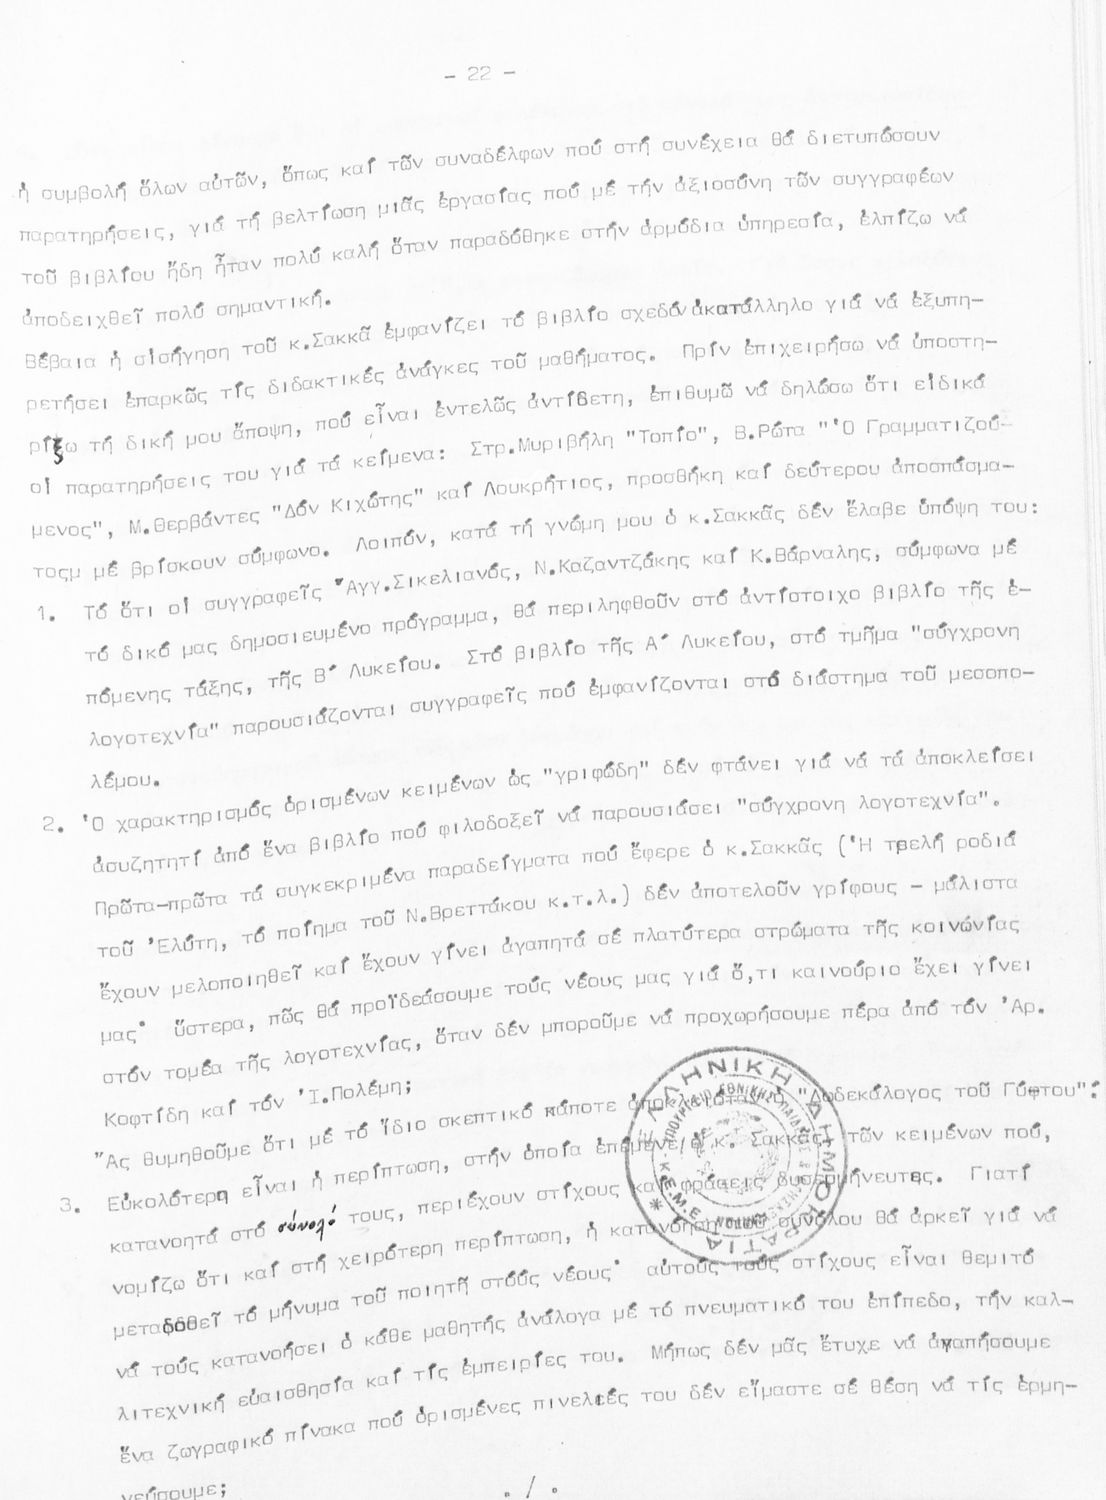 - 22 -
ἡ συμβολή ὅλων αὐτῶν, ὅπως καί τῶν συναδέλφων πού στή συνέχεια θά διετυπώσουν
παρατηρήσεις, γιά τή βελτίωση μιᾶς ἐργασίας πού μέ τήν ἀξιοσύνη τῶν συγγραφέων
τοῦ βιβλίου ἤδη ἦταν πολύ καλή ὅταν παραδόθηκε στήν ἁρμόδια ὑπηρεσία, ἐλπίζω νά
ἀποδειχθεῖ πολύ σημαντική.
Βέβαια ἡ εἰσήγηση τοῦ κ.Σακκᾶ ἐμφανίζει τό βιβλίο σχεδόν ἀκατάλληλο γιά νά ἐξυπη-
ρετήσει ἐπαρκῶς τίς διδακτικές ἀνάγκες τοῦ μαθήματος. Πρίν ἐπιχειρήσω νά ὑποστη-
ρίξω τή δική μου ἄποψη, πού εἶναι ἐντελῶς ἀντίθετη, ἐπιθυμῶ νά δηλώσω ὅτι εἰδικά
οἱ παρατηρήσεις του γιά τά κείμενα: Στρ.Μυριβήλη "Τοπίο", Β.Ρώτα "Ὁ Γραμματιζού-
μενος", Μ.Θερβάντες "Δόν Κιχώτης" καί Λουκρήτιος, προσθήκη καί δεύτερου ἀποσπάσμα-
τοςμ μέ βρίσκουν σύμφωνο. Λοιπόν, κατά τή γνώμη μου ὁ κ.Σακκᾶς δέν ἔλαβε ὑπόψη του:
1. Τό ὅτι οἱ συγγραφεῖς Ἄγγ.Σικελιανός, Ν.Καζαντζάκης καί Κ.Βάρναλης, σύμφωνα μέ
τό δικό μας δημοσιευμένο πρόγραμμα, θά περιληφθοῦν στό ἀντίστοιχο βιβλίο τῆς ἑ-
πόμενης τάξης, τῆς Β΄ Λυκείου. Στό βιβλίο τῆς Α΄ Λυκείου, στό τμῆμα "σύγχρονη
λογοτεχνία" παρουσιάζονται συγγραφεῖς πού ἐμφανίζονται στό διάστημα τοῦ μεσοπο-
λέμου.
2. Ὁ χαρακτηρισμός ὁρισμένων κειμένων ὡς "γριφώδη" δέν φτάνει γιά νά τά ἀποκλείσει
ἀσυζητητί ἀπό ἕνα βιβλίο πού φιλοδοξεῖ νά παρουσιάσει "σύγχρονη λογοτεχνία".
Πρῶτα-πρῶτα τά συγκεκριμένα παραδείγματα πού ἔφερε ὁ κ.Σακκᾶς (Ἡ τρελή ροδιά
τοῦ Ἐλύτη, τό ποίημα τοῦ Ν.Βρεττάκου κ.τ.λ.) δέν ἀποτελοῦν γρίφους - μάλιστα
ἔχουν μελοποιηθεῖ καί ἔχουν γίνει ἀγαπητά σέ πλατύτερα στρώματα τῆς κοινώνίας
μας· ὕστερα, πῶς θά προϊδεάσουμε τούς νέους μας γιά ὅ,τι καινούριο ἔχει γίνει
στόν τομέα τῆς λογοτεχνίας, ὅταν δέν μποροῦμε νά προχωρήσουμε πέρα ἀπό τόν Ἀρ.
Κοφτίδη καί τόν Ἰ.Πολέμη;
Ἄς θυμηθοῦμε ὅτι μέ τό ἴδιο σκεπτικό κάποτε ἀποκλειόταν ὁ "Δωδεκάλογος τοῦ Γύφτου".
3. Εὐκολότερη εἶναι ἡ περίπτωση, στήν ὁποία ἐπέμενε ὁ κ. Σακκᾶς, τῶν κειμένων πού,
κατανοητά στό σύνολό τους, περιέχουν στίχους καί φράσεις δυσερμήνευτες. Γιατί
νομίζω ὅτι καί στή χειρότερη περίπτωση, ἡ κατανόηση τοῦ συνόλου θά ἀρκεῖ γιά νά
μεταδοθεῖ τό μήνυμα τοῦ ποιητῆ στούς νέους· αὐτούς τούς στίχους εἶναι θεμιτό
νά τούς κατανοήσει ὁ κάθε μαθητής ἀνάλογα μέ τό πνευματικό του ἐπίπεδο, τήν καλ-
λιτεχνική εὐαισθησία καί τίς ἐμπειρίες του. Μήπως δέν μᾶς ἔτυχε νά ἀγαπήσουμε
ἕνα ζωγραφικό πίνακα πού ὁρισμένες πινελιές του δέν εἴμαστε σέ θέση νά τίς ἑρμη-
νεύσουμε;
. / .
ΕΛΛΗΝΙΚΗ ΔΗΜΟΚΡΑΤΙΑ
Κ.Ε.Μ.Ε.